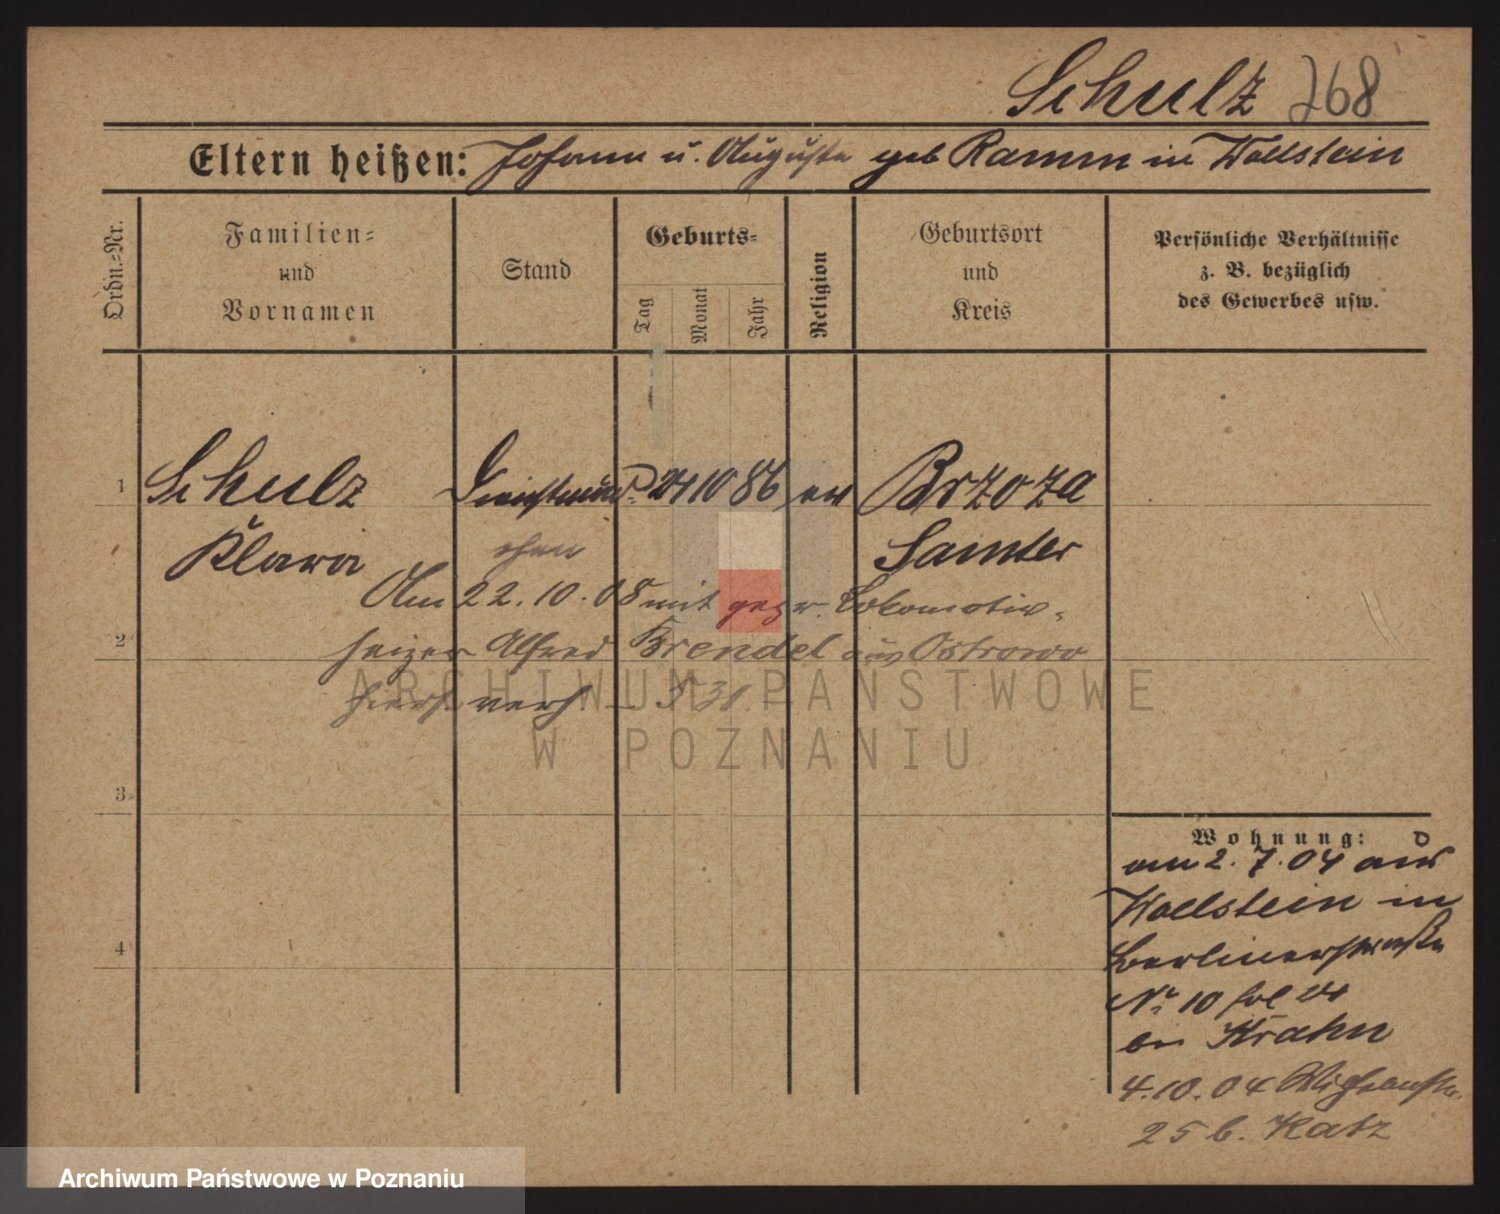 Schulz 268
Eltern heißen: Johann u. Auguste geb Ramm in Wollstein
Ordn.-Nr.
Familien-
und
Vornamen
Stand
Geburts-
Tag
Monat
Jahr
Religion
Geburtsort
und
Kreis
Persönliche Verhältnisse
z. B. bezüglich
des Gewerbes usw.
1 Schulz 24 10 86 ev Brzoza
Klara chen Samter
Am 22. 10. 08 mit gegw. Lokomotiv-
2 heizer Alfred Brendel aus Ostrowo
hiers. verh. – 531.
ARCHIWUM PAŃSTWOWE
W POZNANIU
3
Wohnung:
am 2. 7. 04 aus
Wollstein in
Berlinerstraße
4
No 10
bei Krahn
4.10.04
25 b. Katz
Archiwum Państwowe w Poznaniu